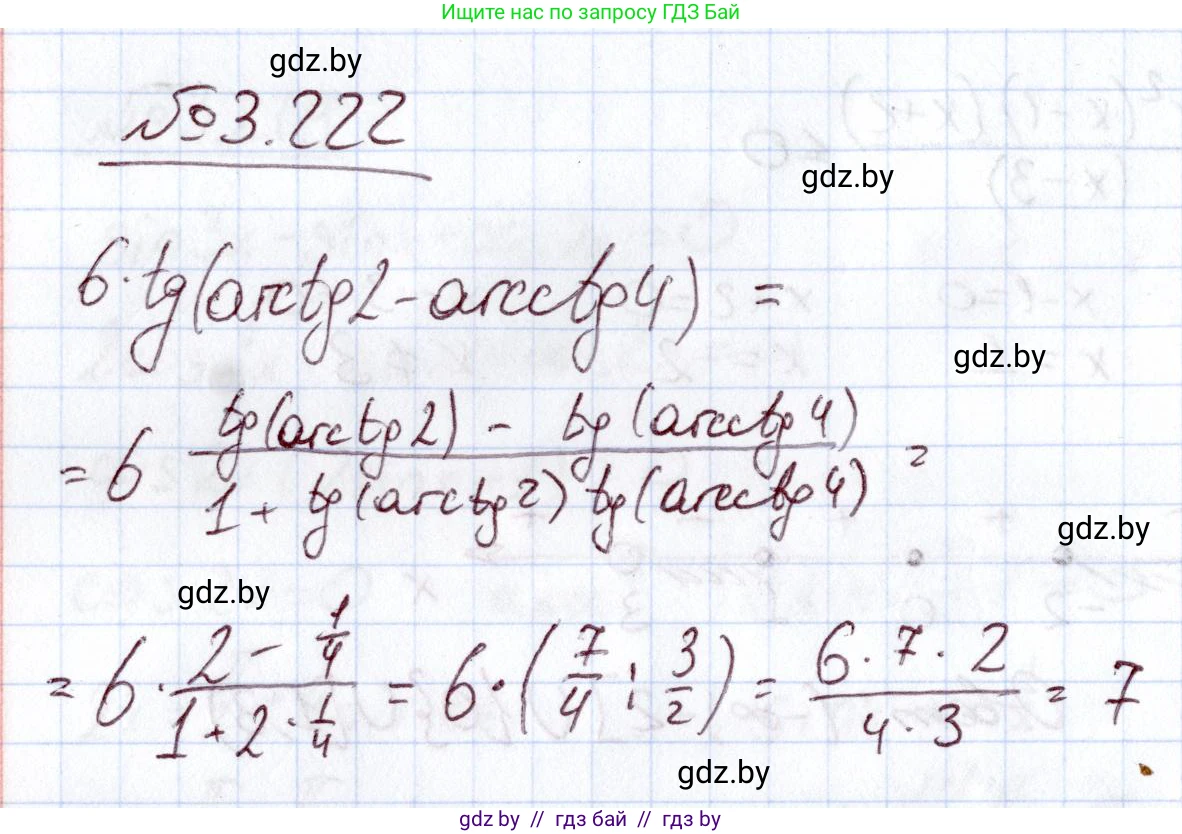 Ищите нас по запросу ГДЗ Бай
gdz.by
№3.222
gdz.by
6·tg(arctg2-arcctg4) =
gdz.by
= 6 (tg(arctg2) - tg(arcctg4)) / (1 + tg(arctg2) tg(arcctg4)) =
gdz.by
gdz.by
= 6 · (2 - 1/4) / (1 + 2 · 1/4) = 6 · (7/4 : 3/2) = (6 · 7 · 2) / (4 · 3) = 7
gdz.by
gdz by // гдз бай // гдз by